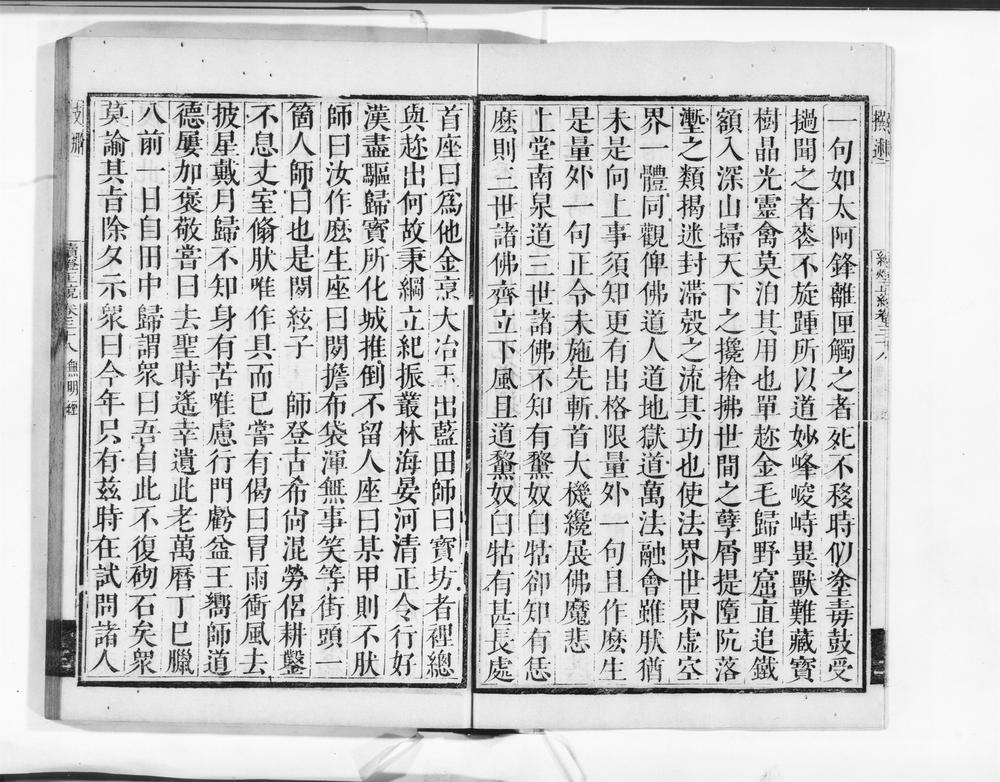 一句如太阿鋒離匣觸之者死不移時似塗毒鼓受
撾聞之者丧不旋踵所以道妙峰峻峙異獸難藏寶
樹晶光靈禽莫泊其用也單趂金毛歸野窟直追鐵
額入深山掃天下之攙搶拂世間之孽屑提墮阬落
壍之類揭迷封滯殼之流其功也使法界世界虛空
界一體同觀俾佛道人道地獄道萬法融會雖肰猶
未是向上事須知更有出格限量外一句且作麽生
是量外一句正令未施先斬首大機纔展佛魔悲
上堂南泉道三世諸佛不知有黧奴白牯卻知有恁
麽則三世諸佛齊立下風且道黧奴白牯有甚長處
首座曰為他金烹大冶玉出藍田師曰寶坊者裡總
與趂出何故秉綱立紀振叢林海晏河清正令行好
漢盡驅歸寶所化城推倒不留人座曰某甲則不肰
師曰汝作麽生座曰閱擔布袋渾無事笑等街頭一
箇人師曰也是閱絃子　師登古希尚混勞侶耕鑿
不息丈室翛肰唯作具而已嘗有偈曰冒雨衝風去
披星戴月歸不知身有苦唯慮行門虧益王嚮師道
德屢加褒敬嘗曰去聖時遙幸遺此老萬曆丁巳臘
八前一日自田中歸謂眾曰吾自此不復砌石矣眾
莫諭其旨除夕示眾曰今年只有茲時在試問諸人
續燈正統卷三十八 無明經